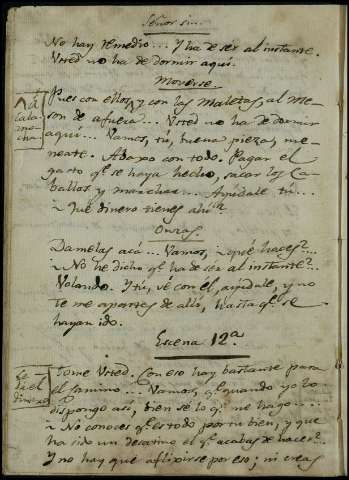 Señor sin...
No hay remedio... Y ha de ser al instante.
Vsted no ha de dormir aquí.
Moverse.
Pues con ellos y con las Maletas, al me-
son de afuera... Vsted no ha de dormir
aquí... Vamos, tú, buena pieza, me-
neate. Abaxo con todo. Pagar el
gasto q.e se haya hecho, sacar los Ca-
ballos y marchar... Ayúdale tú....
¿Qué dinero tienes ahí?
A
Cala-
mo-
cha
Onzas.
Damelas acá... Vamos, ¿qué haces?...
¿No he dicho q.e ha de ser al instante?..
Volando. Y tú, vé con él, ayúdale, y no
te me apartes de allí, hasta q.e se
hayan ido.
Escena 12.a
Le
da el
dinero
Tome Vsted. Con eso hay bastante para
el camino... Vamos, q.e quando yo lo
dispongo así, bien sé lo q.e me hago....
¿No conoces q.e es todo por tu bien, y que
ha sido un desatino el q.e acabas de hacer?..
Y no hay que afligirse por eso; ni creas